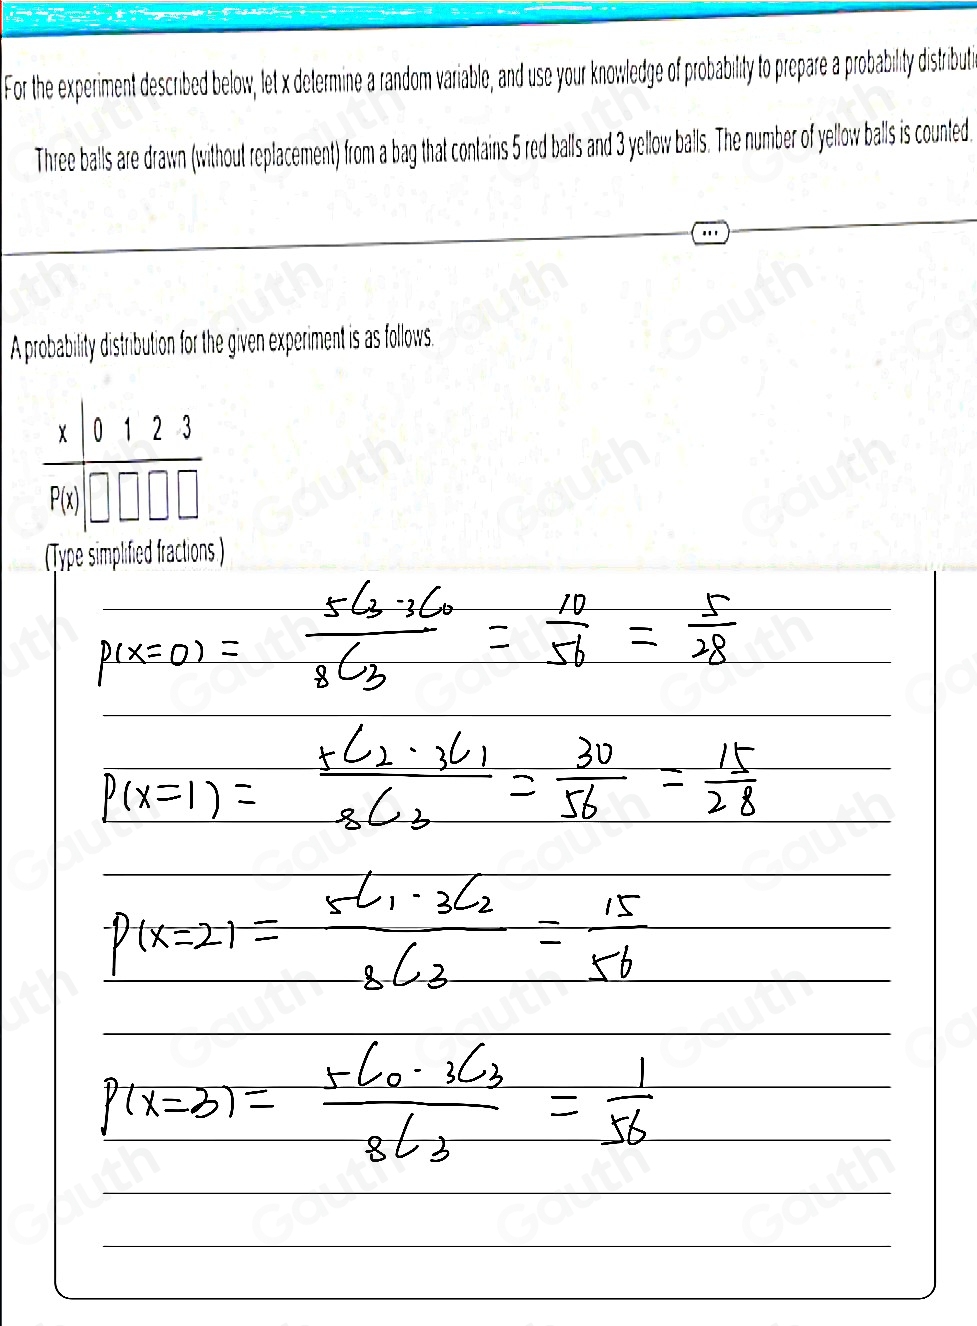 For the experiment described below, let x determine a random variable, and use your knowledge of probability to prepare a probability distributi
Three balls are drawn (without replacement) from a bag that contains 5 red balls and 3 yellow balls. The number of yellow balls is counted.
...
A probability distribution for the given experiment is as follows.
x 0 1 2 3
P(x)
(Type simplified fractions.)
P(x=0) = 5C3·3C0 / 8C3 = 10/56 = 5/28
P(x=1) = 5C2·3C1 / 8C3 = 30/56 = 15/28
P(x=2) = 5C1·3C2 / 8C3 = 15/56
P(x=3) = 5C0·3C3 / 8C3 = 1/56
Gauth